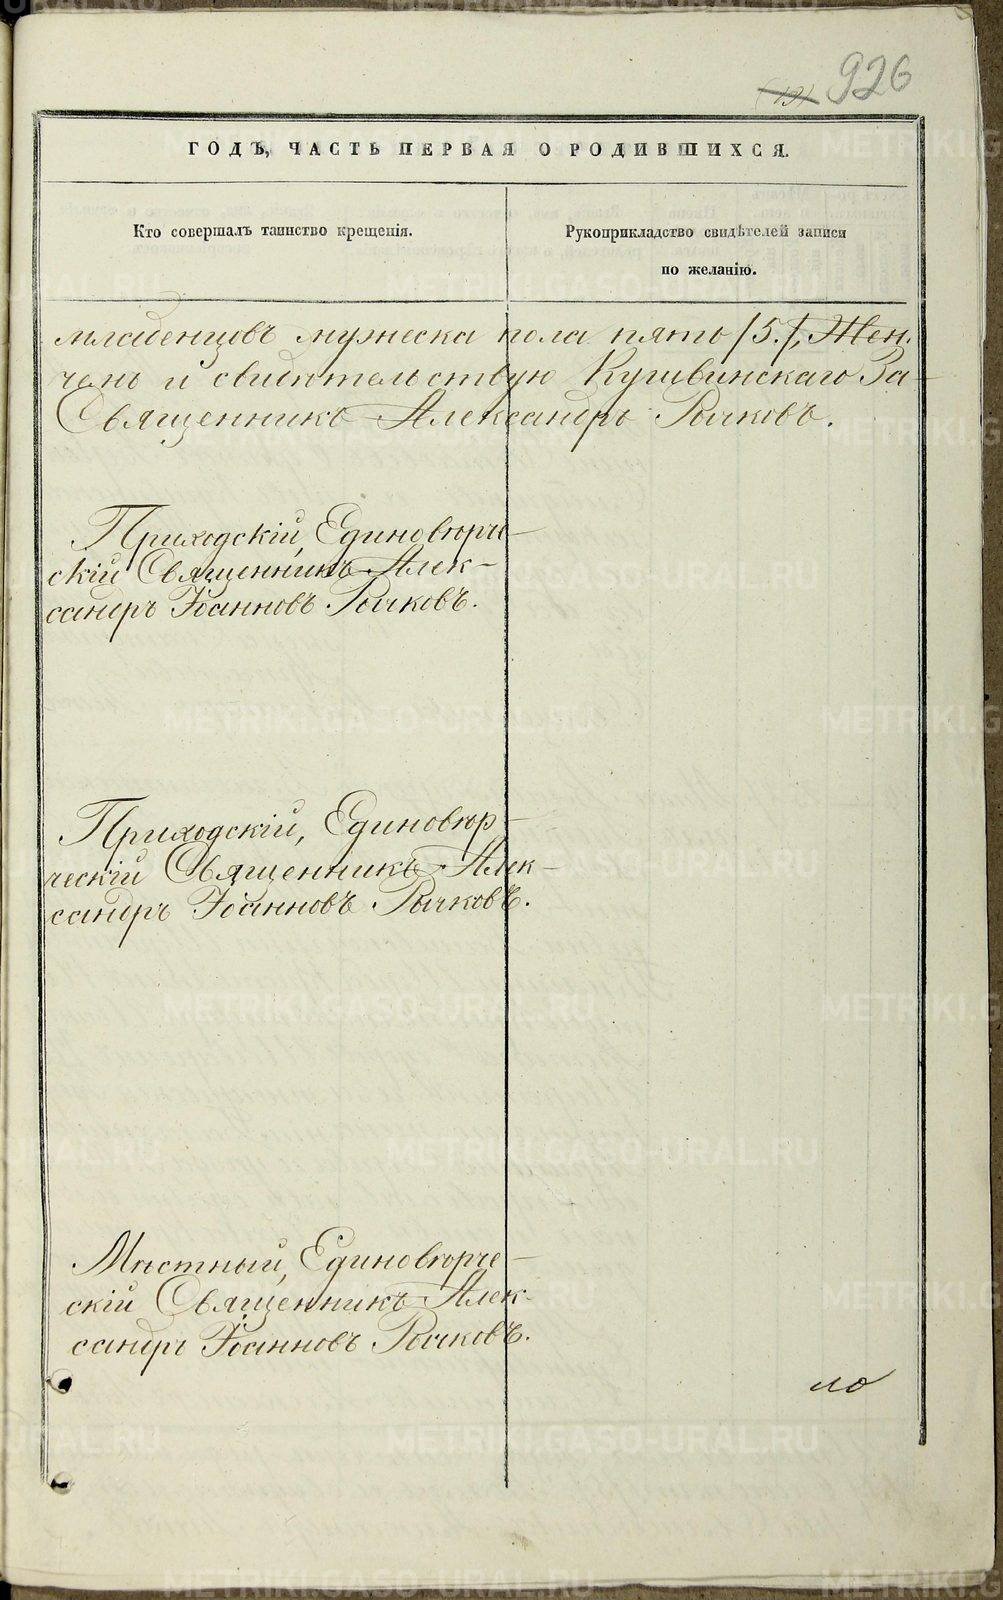 (19) 926
ГОДЪ, ЧАСТЬ ПЕРВАЯ О РОДИВШИХСЯ.
Кто совершалъ таинство крещенія.
Рукоприкладство свидѣтелей записи
по желанію.
младенцовъ мужеска пола пять /5./, Жен-
чень и свидѣтельствую Кушвинскаго За-
Священникъ Александръ Рычковъ.
Приходскій, Единовѣрче-
скій Священникъ Алек-
сандръ Іоанновъ Рычковъ.
Приходскій, Единовѣр-
ческій Священникъ Алек-
сандръ Іоанновъ Рычковъ.
Мѣстный, Единовѣрче-
скій Священникъ Алек-
сандръ Іоанновъ Рычковъ.
ло
METRIKI.GASO-URAL.RU